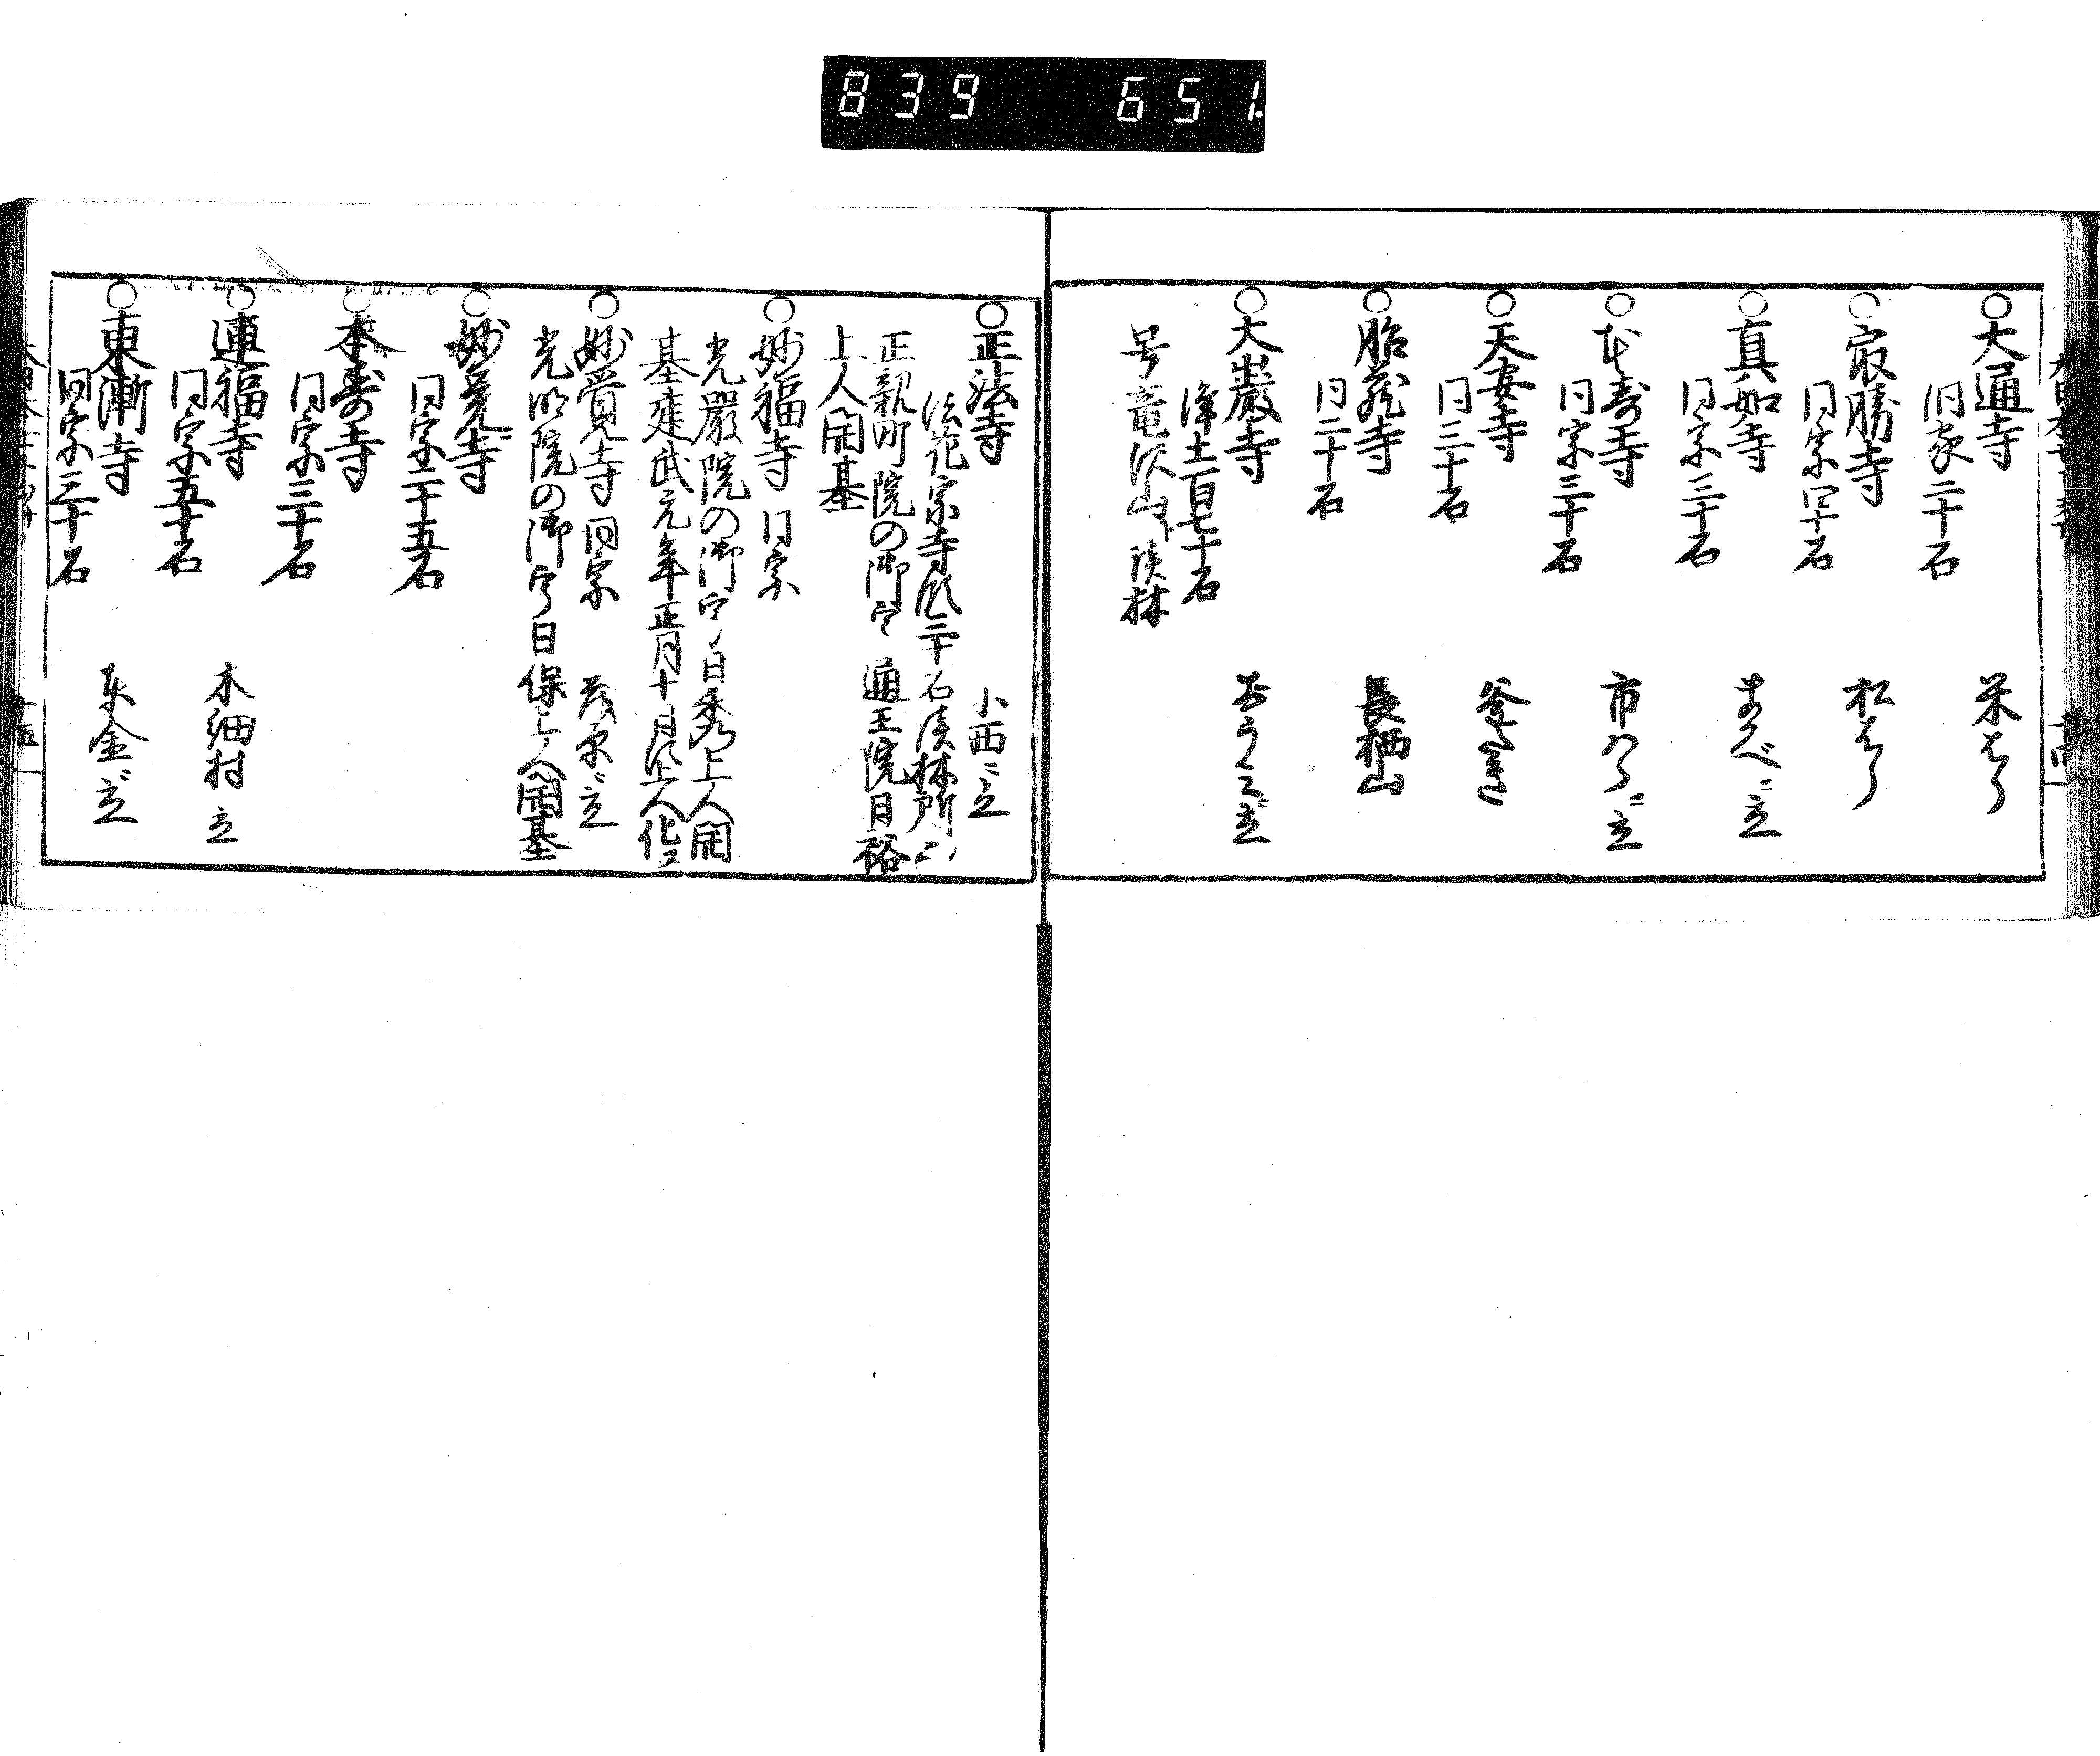 839 651
○大通寺 米はら
同家二十石
○最勝寺 松はら
同宗四十石
○真如寺 まべニ立
同宗三十石
○長寿寺 市わらニ立
同宗三十石
○天安寺
同三十石
○胎蔵寺 長栖山
同二十石
○大巌寺
浄土百七十石
号竜沢山 談林
○正法寺 小西ニ立
法花宗寺領二十石談林所
正親町院の御宇 通王院日裕
上人開基
○妙福寺 同宗
光嚴院の御宇 日秀上人開
基建武元年正月十日上人化ス
○妙覚寺 同宗 茂原ニ立
光明院の御宇日保上人開基
○妙光寺
同宗二十五石
○本寿寺
同宗三十石
○蓮福寺 木細村 立
同宗五十石
○東漸寺 東金ニ立
同宗三十石